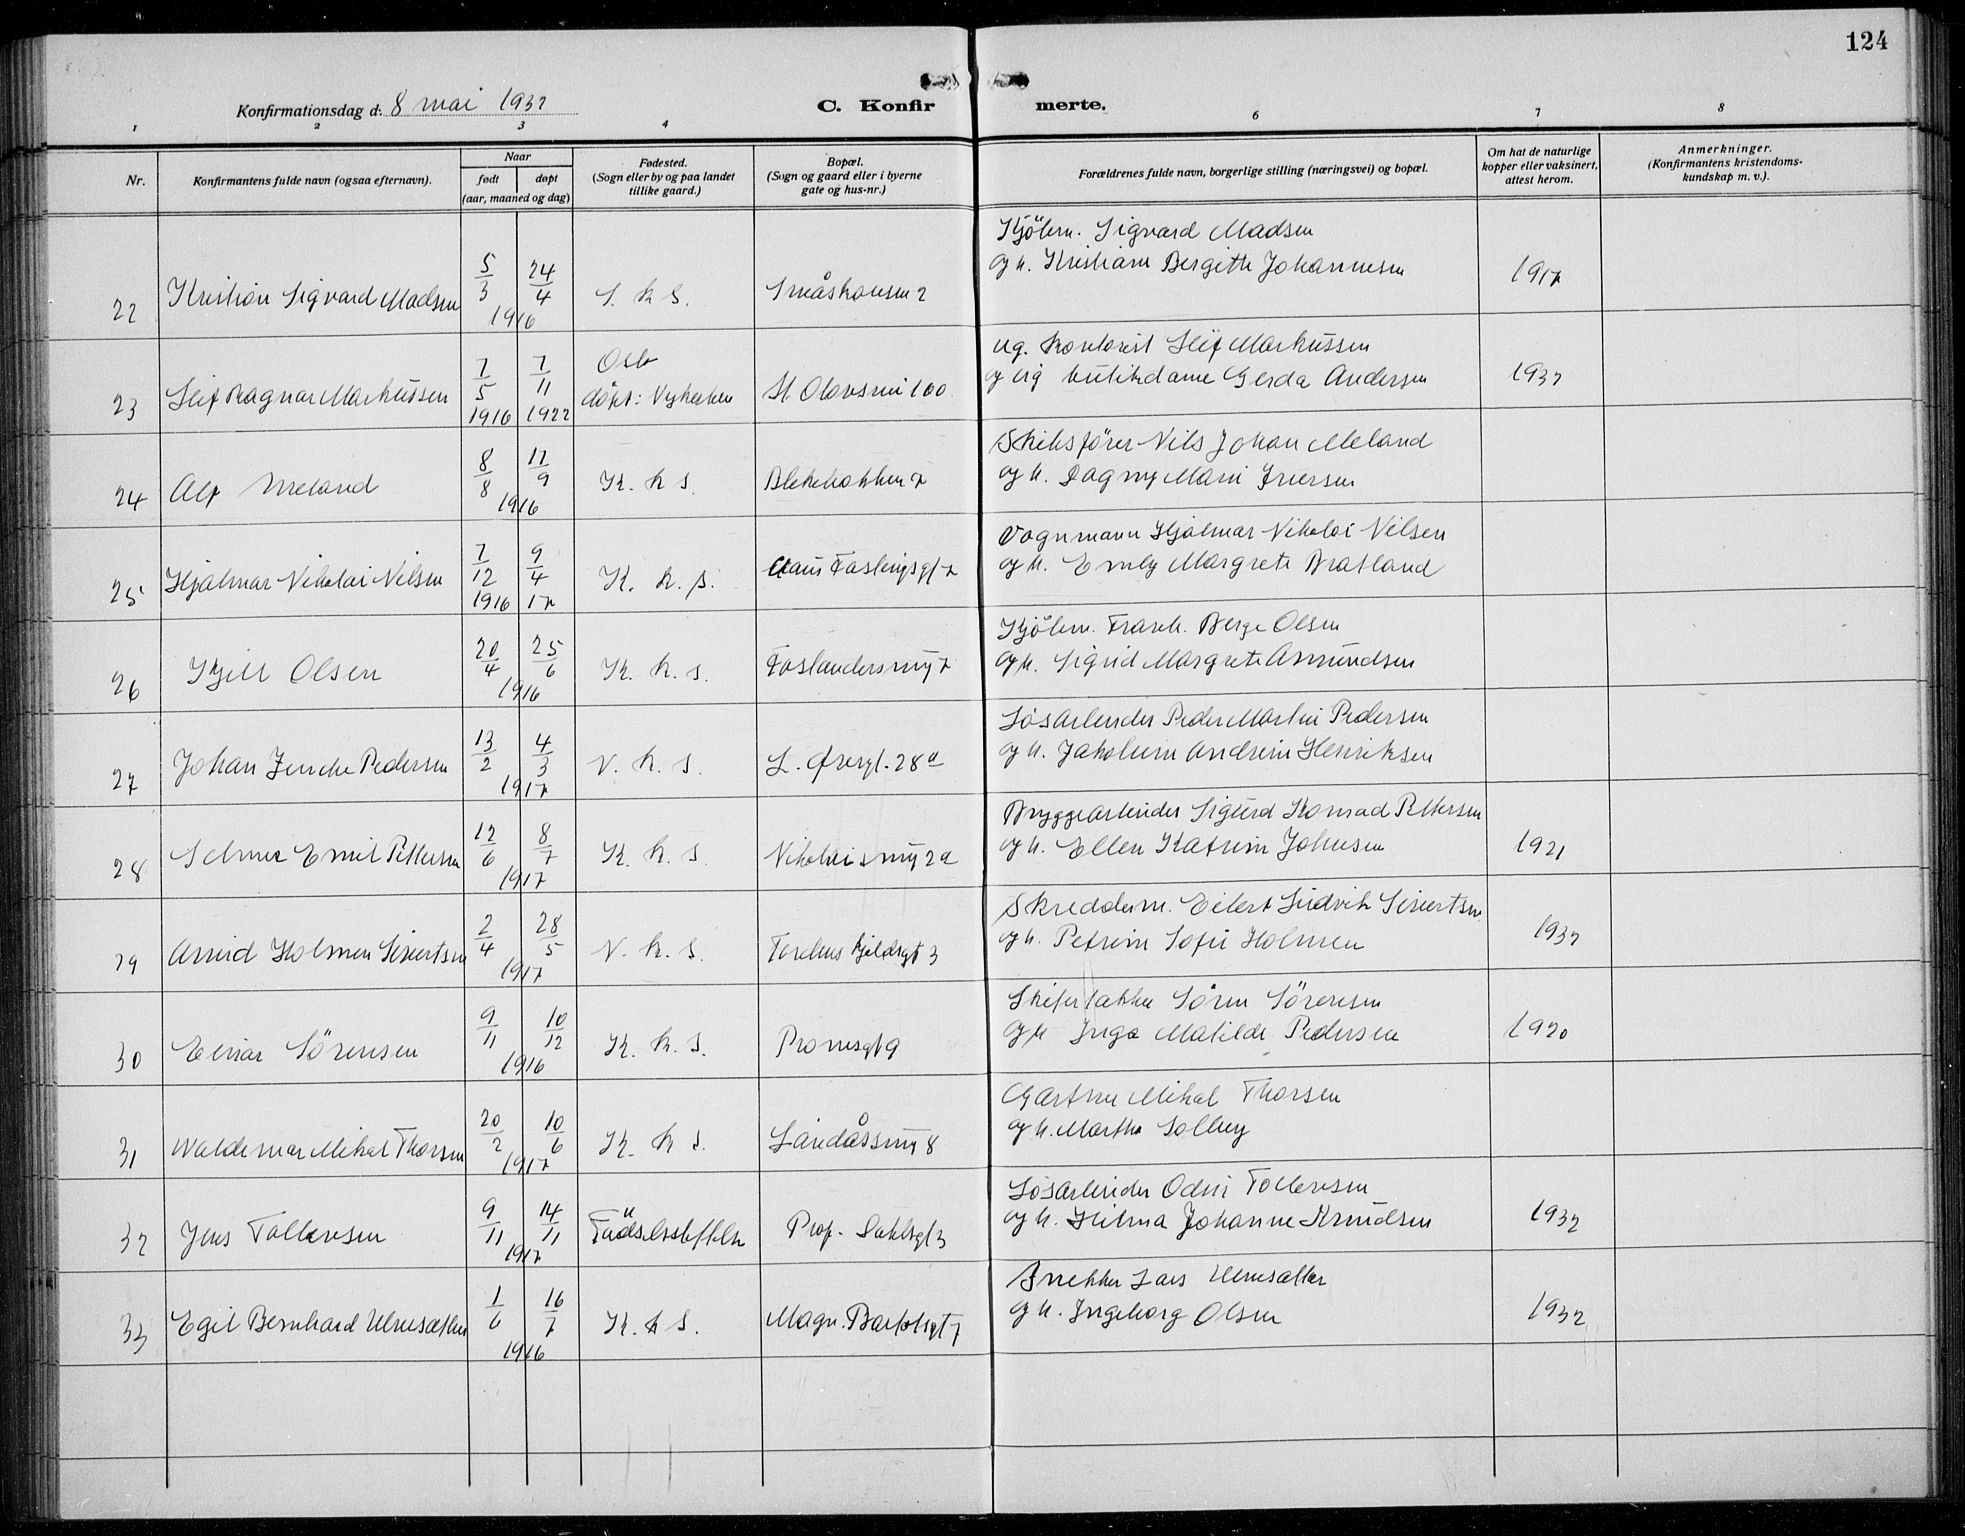 124
Konfirmationsdag d. 8 mai 1932
C. Konfirmerte.
1 2 3 4 6 7 8
Nr.
Konfirmantens fulde navn (ogsaa efternavn).
Naar
født døpt
(aar, maaned og dag)
Fødested.
(Sogn eller by og paa landet
tillike gaard.)
Bopæl.
(Sogn og gaard eller i byerne
gate og hus-nr.)
Forældrenes fulde navn, borgerlige stilling (næringsvei) og bopæl.
Om hat de naturlige
kopper eller vaksinert,
attest herom.
Anmerkninger.
(Konfirmantens kristendoms-
kundskap m. v.).
22 Kristian Sigvard Madsen 5/3 24/4 1916 S. K S. 2
Sigvard Madsen
og h. Bergitte Johannesen 1917
23 Leif Ragnar Markussen 7/5 1916 7/11 1922 Oslo
døpt: Nykirken St Olavsvei 100
ug. kontorist Leif Markussen
og ug butikdame Gerda Andersen 1932
24 Alf Meland 8/8 11/9 1916 K. K S. Blekebakken 7
Skibsfører Nils Johan Meland
og h. Dagny Marie Iversen
25 Hjalmar Nikolai Nilsen 7/12 1916 9/4 17 K. K. S. Claus Fastingsgt 7
Vognmann Hjalmar Nikolai Nilsen
og h. Emly Margrete Bratland
26 Kjell Olsen 20/4 25/6 1916 K. K. S.
Frank. Berge Olsen
og h. Sigrid Margrete Asmundsen
27 Johan Pedersen 13/2 4/3 1917 N. K. S. L. Øvregt. 28a
Løsarbeider Peder Martin Pedersen
og h. Jakobine Andrine Henriksen
28 Selmer Emil Pettersen 12/6 8/7 1917 K. K. S. Nikolaismug 2a
Bryggearbeider Sigurd Konrad Pettersen
og h. Ellen Katrine Johnsen 1921
29 Arvid Holmen Sivertsen 2/4 28/5 1917 N. K. S. 3
Skredderm. Eilert Ludvik Sivertsen
og h. Petrine Sofie Holmen 1932
30 Einar Sörensen 9/11 10/12 1916 K. K. S. 9
Sören Sörensen
og h Inga Matilde Pedersen 1920
31 Waldemar Mikal Thorsen 20/2 10/6 1917 K. K S. Landåssmug 8
Gartner Mikal Thorsen
og h. Martha Solberg
32 Jens Tollevsen 9/11 14/11 1917 Födselsstiftelsen Prof. Dahlsgt 3
Løsarbeider Odin Tollevsen
og h. Hilma Johanne Knudsen 1932
33 Egil Bernhard Ulvesæther 1/6 16/7 1916 K. K S. Magn. Barfotsgt 7
Snekker Lars Ulvesæther
og h. Ingeborg Olsen 1932